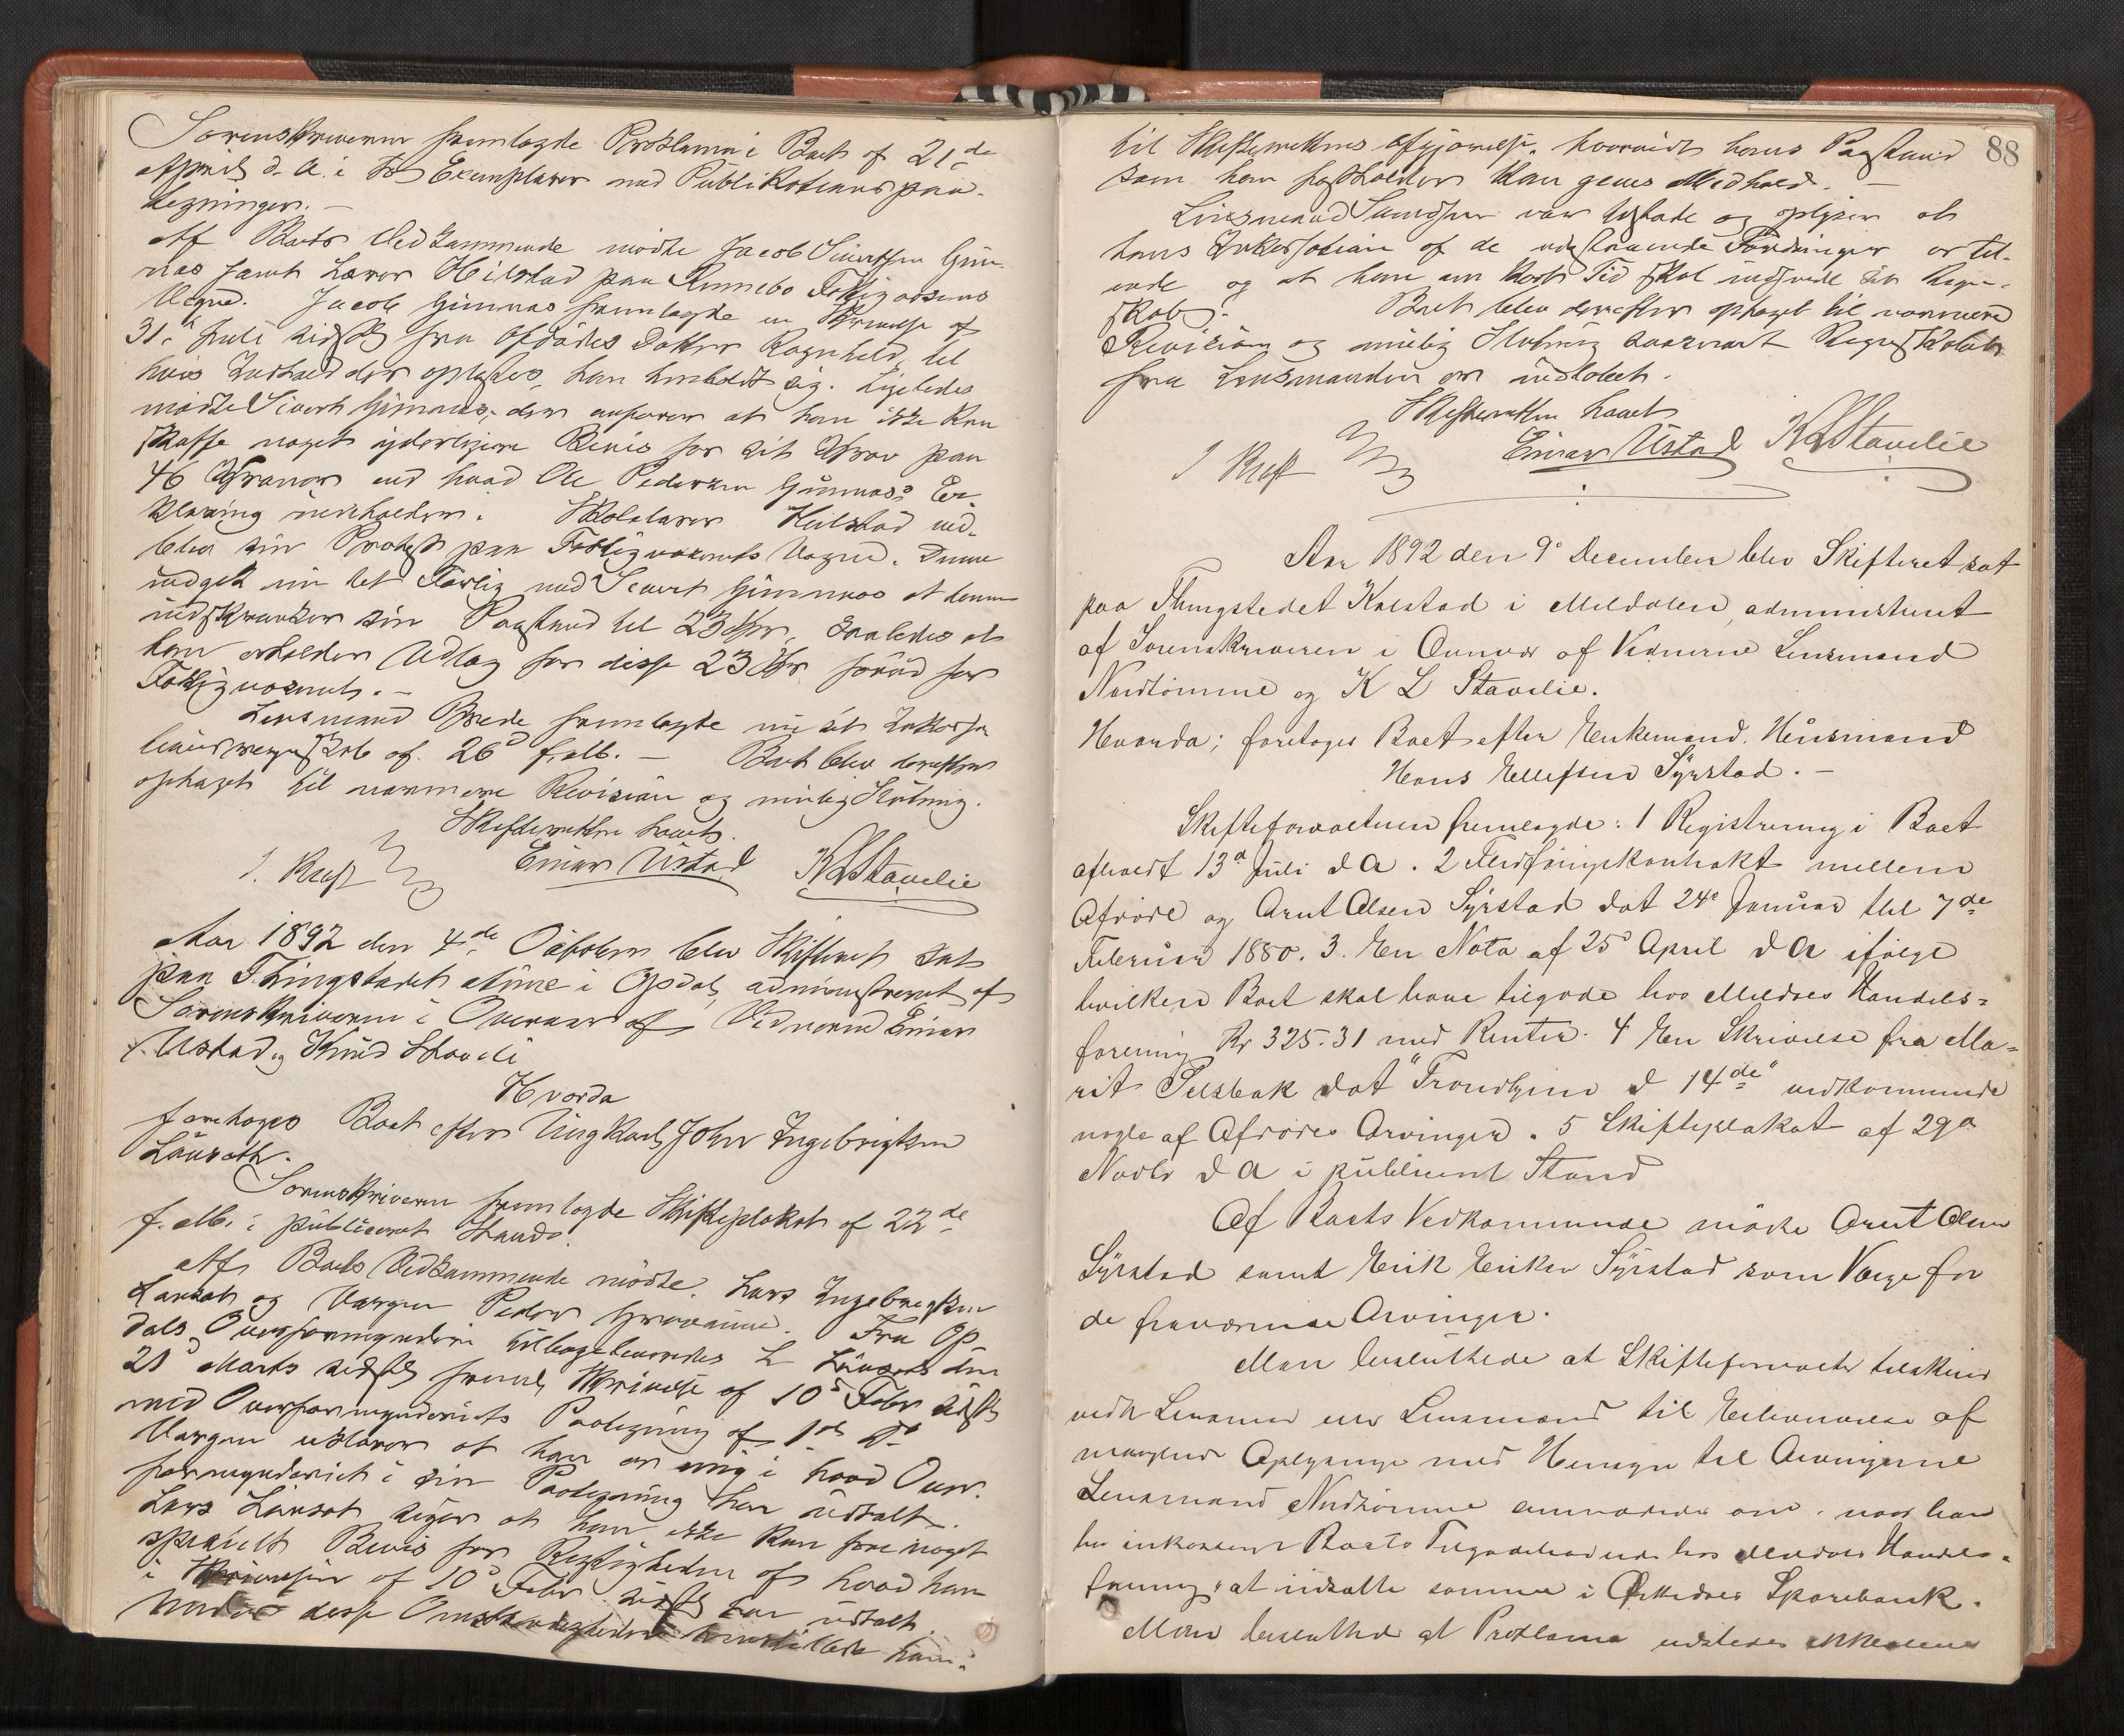 Sorenskriveren fremlagde Proklama i Boet af 21de
April d. A. i to Exemplarer med Publikationspaa-
tegninger. —
Af Boets Vedkommende mødte Jacob Sivertsen Gim-
nes samt Lærer Heilstad paa Rennebo Fattigvæsens
Vegne. Jacob Gimnes fremlagde en Skrivelse af
31te Juli sidstl. fra Afdødes Datter Ragnhild, til
hvis Indhold der oplæstes, han henholdt sig. Ligeledes
mødte Sivert Gimnes, der anfører at han ikke kan
skaffe noget yderligere Bevis for sit Krav paa
46 Kroner end hvad Ole Pedersen Gimnes's Er-
klæring indeholder. Skolelærer Heilstad ned-
lagde sin Protest paa Fattigvæsenets Vegne. Denne
indgik nu det Forlig med Sivert Gimnes at denne
indskrænker sin Paastand til 23 Kr, saaledes at
han erholder Udlæg for disse 23 Kr forud for
Fattigvæsenet. —
Lensmand Brede fremlagde nu sit Inkassa-
tionsregnskab af 26d f. Mb. — Boet blev derefter
optaget til nærmere Revision og mulig Slutning.
Skifteretten hævet.
J. Rust Einar Ustad KLStavelie
Aar 1892 den 4de October blev Skifteret sat
paa Thingstedet Aune i Opdal, administreret af
Sorenskriveren i Overvær af Vidnerne Einar
Ustad og Knud Stavli
Hvorda
foretoges Boet efter Ungkarl John Ingebrigtsen
Lånsæth.
Sorenskriveren fremlagde Skifteplakat af 22de
f. Mb. i publiceret Stand.
Af Boets Vedkommende mødte. Lars Ingebrigtsen
Lånsæt og Værgen Peder Grøvaune. Fra Op-
dals Overformynderi tilbageleveredes L Lånsets den
21d Marts sidstl freml Skrivelse af 10d Febr sidstl
med Overformynderiets Paategning af 1ste ds
Værgen erklærer at han er enig i hvad Over-
formynderiet i sin Paategning har udtalt.
Lars Lånset siger at han ikke kan føre noget
specielt Bevis for Rigtigheden af hvad han
i Skrivelsen af 10d Febr sidstl har udtalt.
Under disse Omstændigheder henstillede han
88
til Skifterettens Afgjørelse, hvorvidt hans Paastand
som han fastholder kan gives Medhold. —
Lensmand Sundseth var tilstede og oplyser at
hans Inkassation af de udestaaende Fordringer er til-
ende og at han om kort Tid skal indsende sin Regn-
skab. Boet blev derefter optaget til nærmere
Revision og mulig Slutning saasnart Regnskabet
fra Lensmanden er indløbet.
Skifteretten hævet
J Rust Einar Ustad KLStavelie
Aar 1892 den 9d December blev Skifteret sat
paa Thingstedet Kalstad i Meldalen, administreret
af Sorenskriveren i Overvær af Vidnerne Lensmand
Nordtømme og K L Stavelie.
Hvorda; foretoges Boet efter Enkemand. Husmand
Hans Ellefsen Syrstad. —
Skifteforvalteren fremlagde: 1 Registrering i Boet
afholdt 13d Juli d A. 2 Flerføringskontrakt mellem
Afdøde og Arnt Olsen Syrstad dat 24d Januar thl 7de
Februar 1880. 3. En Nota af 25d April d A ifølge
hvilken Boet skal have tilgode hos Meldals Handels=
forening Kr 325.31 med Renter. 4 En Skrivelse fra Ma=
rit Solsbak dat "Trondhjem d 14de" vedkommende
nogle af Afdødes Arvinger. 5 Skifteplakat af 29d
Novbr d A i publiceret Stand
Af Boets Vedkommende mødte Arnt Olsen
Syrstad samt Erik Eriksen Syrstad som Værge for
de fraværende Arvinger.
Man besluttede at Skifteforvalteren tilskriver
vedk Lensmænd til Erhvervelse af
manglende Oplysninger med Hensyn til Arvingerne
Lensmand Nordtømme anmodedes om, naar han
har inkasseret Boets Tilgodehavende hos Meldals Handels=
forening, at indsætte samme i Orkedals Sparebank.
Man besluttede at Proklama udstedes